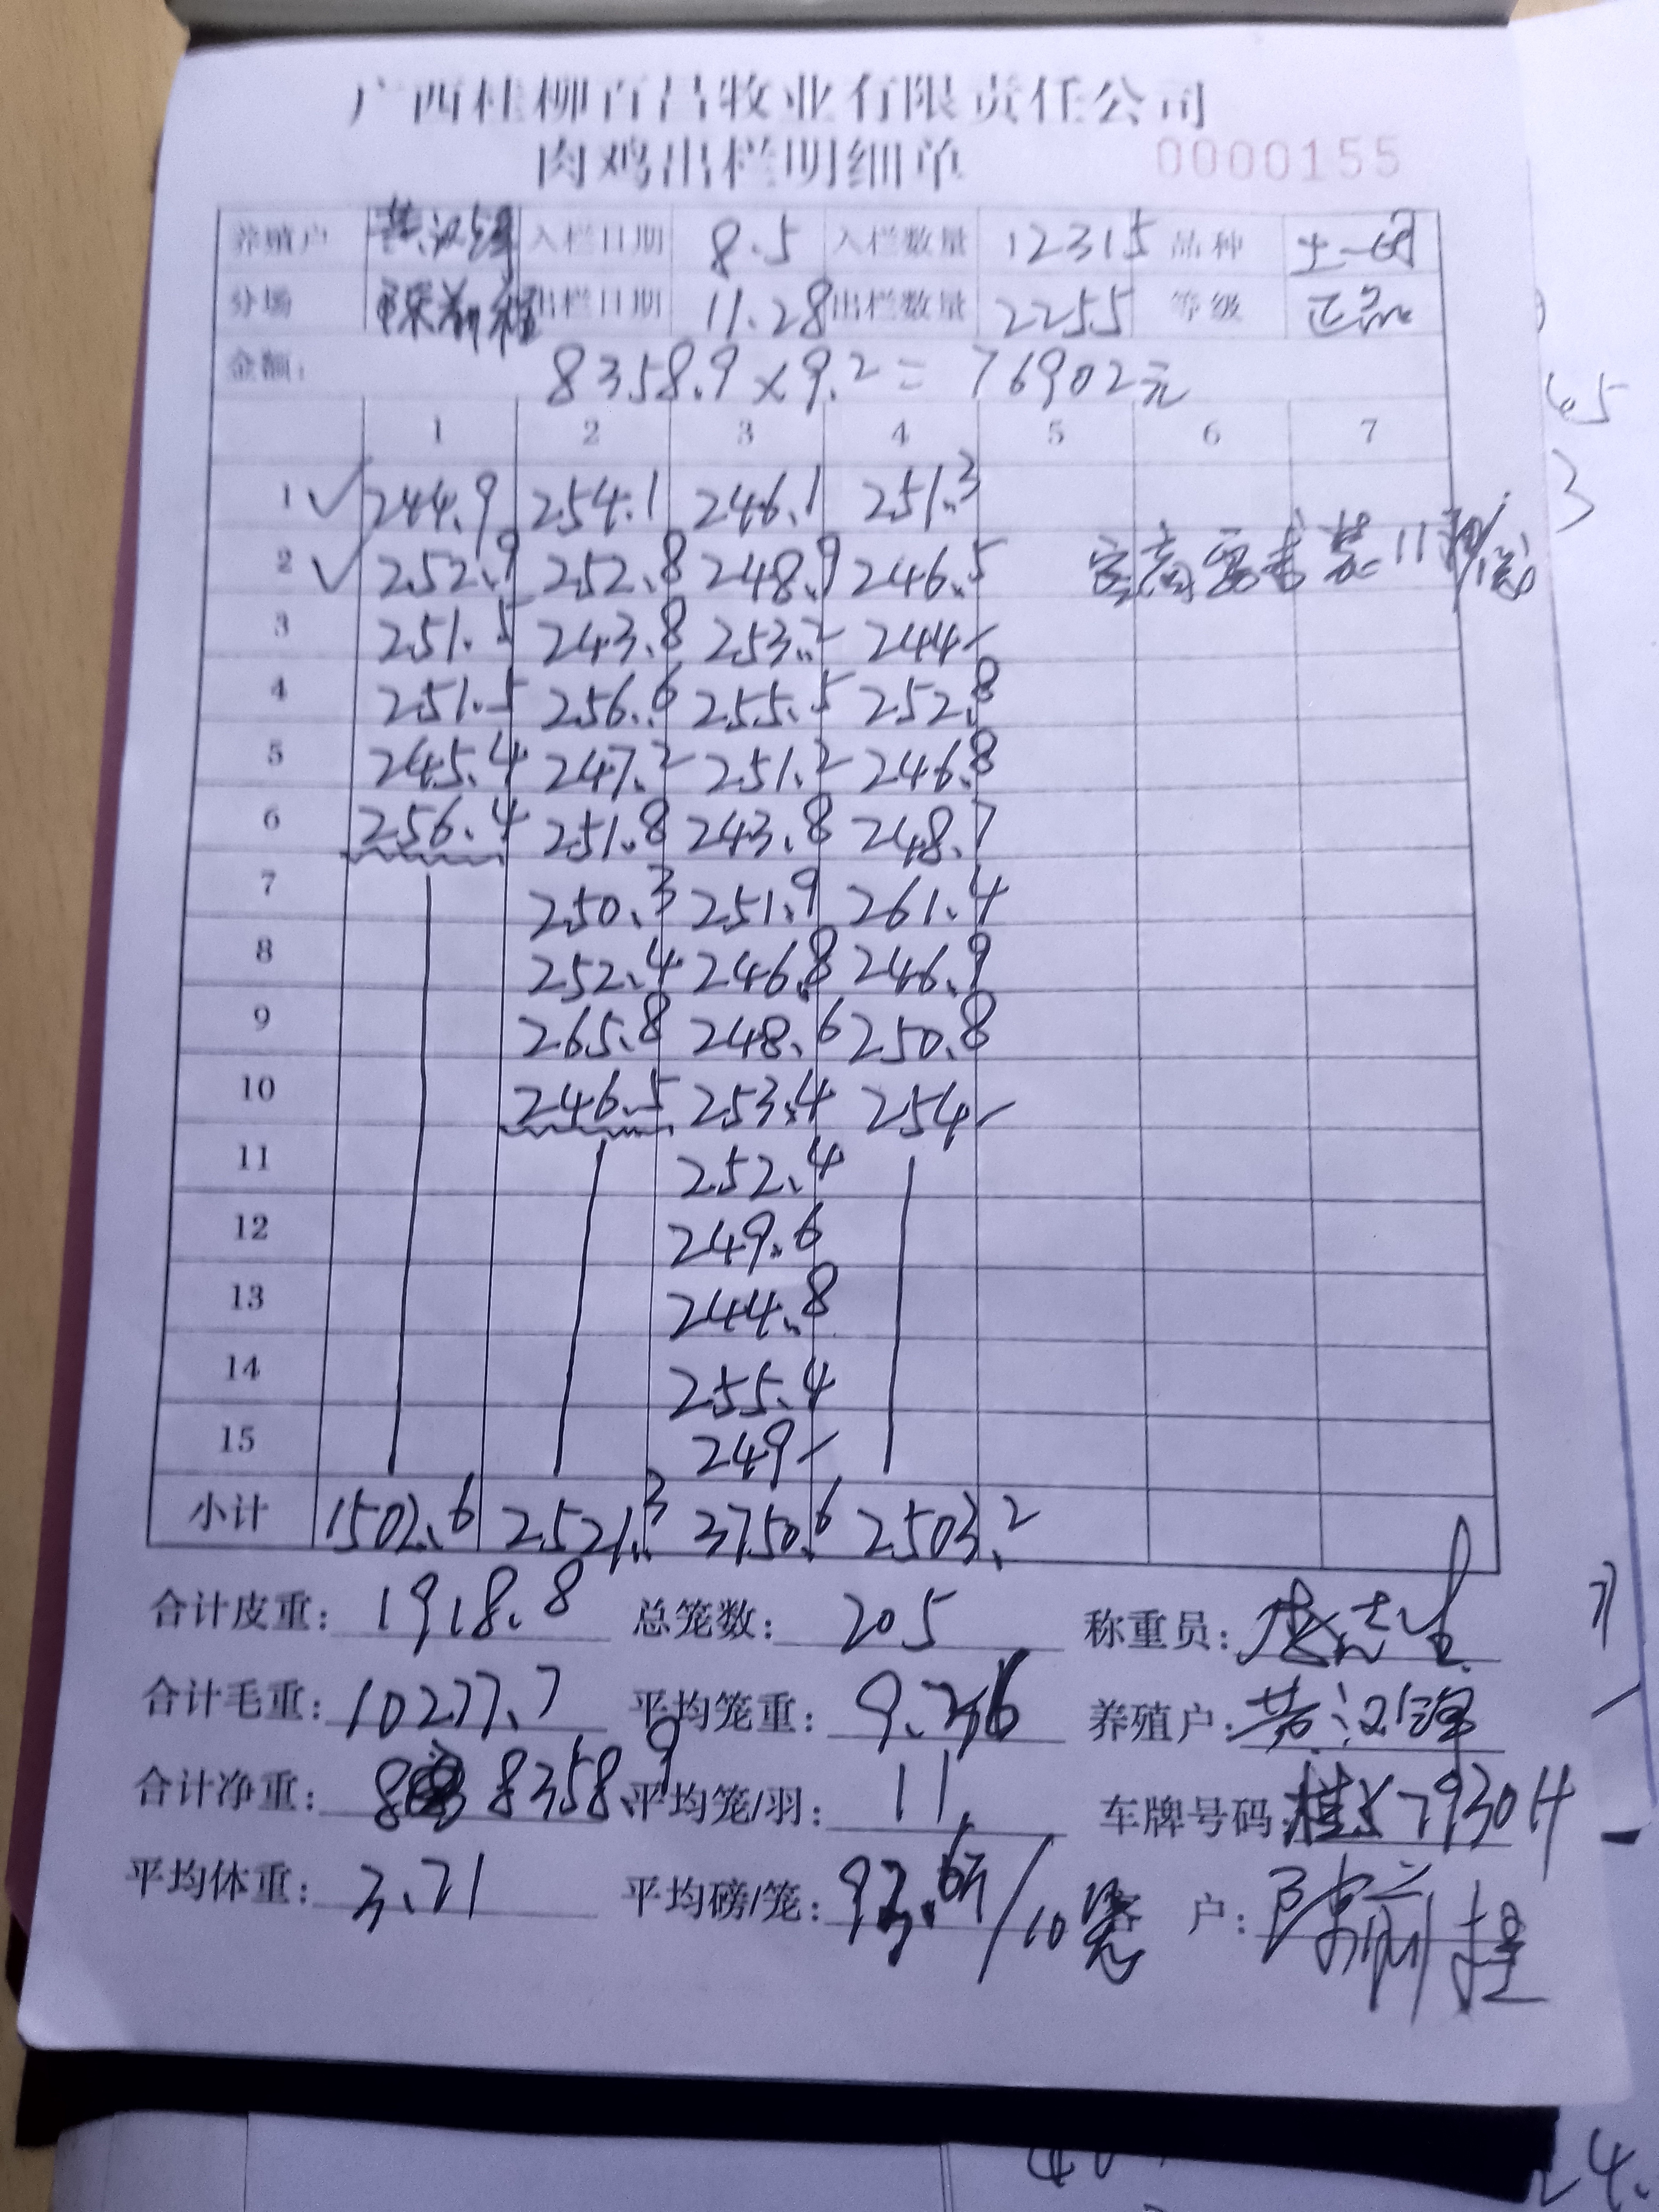 广西桂柳百昌牧业有限责任公司
肉鸡出栏明细单 0000155
养殖户 黄汉锋 入栏日期 8.5 入栏数量 12315 品种 土一
分场 陈前程 出栏日期 11.28 出栏数量 2255 等级 正品
金额: 8358.9×9.2=76902元
1 2 3 4 5 6 7
1 ✓ 244.9 254.1 246.1 251.3
2 ✓ 252.9 252.8 248.9 246.5 客商要求装11羽/笼
3 251.5 243.8 253.2 244-
4 251.5 256.6 255.5 252.8
5 245.4 247.2 251.2 246.8
6 256.4 251.8 243.8 248.7
7 250.3 251.9 261.4
8 252.4 246.8 246.9
9 265.8 248.6 250.8
10 246.5 253.4 254-
11 252.4
12 249.6
13 244.8
14 255.4
15 249-
小计 1502.6 2521.3 3750.6 2503.2
合计皮重: 1918.8 总笼数: 205 称重员:
合计毛重: 10277.7 平均笼重: 9.36 养殖户: 黄汉锋
合计净重: 8358.9 平均笼/羽: 11 车牌号码: 桂 7930H
平均体重: 3.71 平均磅/笼: 93.6斤/10笼 客户: 陈前程